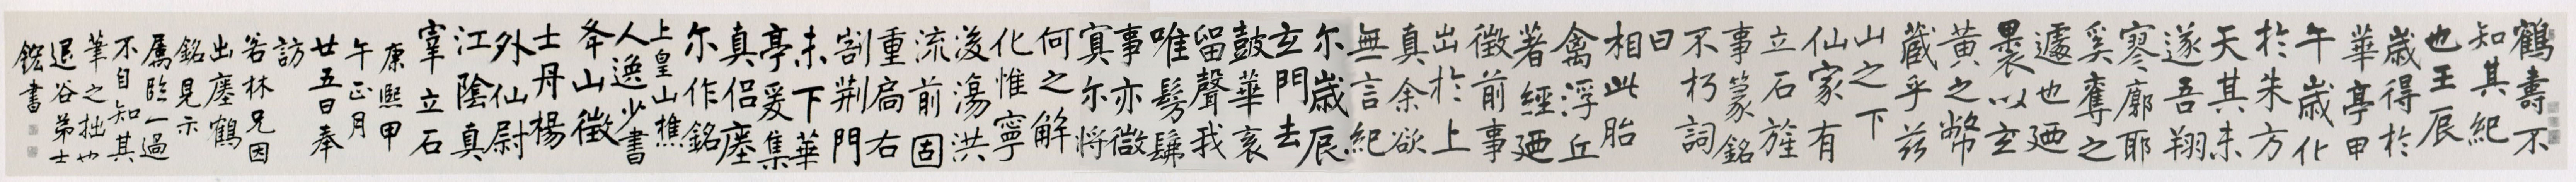 鶴壽不
知其紀
也壬辰
歲得於
華亭甲
午歲化
於朱方
天其未
遂吾翔
寥廓耶
奚奪之
遽也廼
裹以玄
黃之幣
藏乎茲
山之下
仙家有
立石旌
事篆銘
不朽詞
曰
相此胎
禽浮丘
著經廼
徵前事
出於上
真余欲
無言紀
尔歲辰
玄門去
鼓華表
留聲我
唯髣髴
事亦微
冥尔将
何之解
化惟寧
後蕩洪
流前固
重扃右
割荆門
未下華
亭爰集
真侶瘞
尔作銘
上皇山樵
人逸少書
夅山徵
士丹楊
外仙尉
江陰真
宰立石
康熙甲
午正月
廿五日奉
訪
若林兄因
出瘞鶴
銘見示
屬臨一過
不自知其
筆之拙也
退谷弟士
鋐書